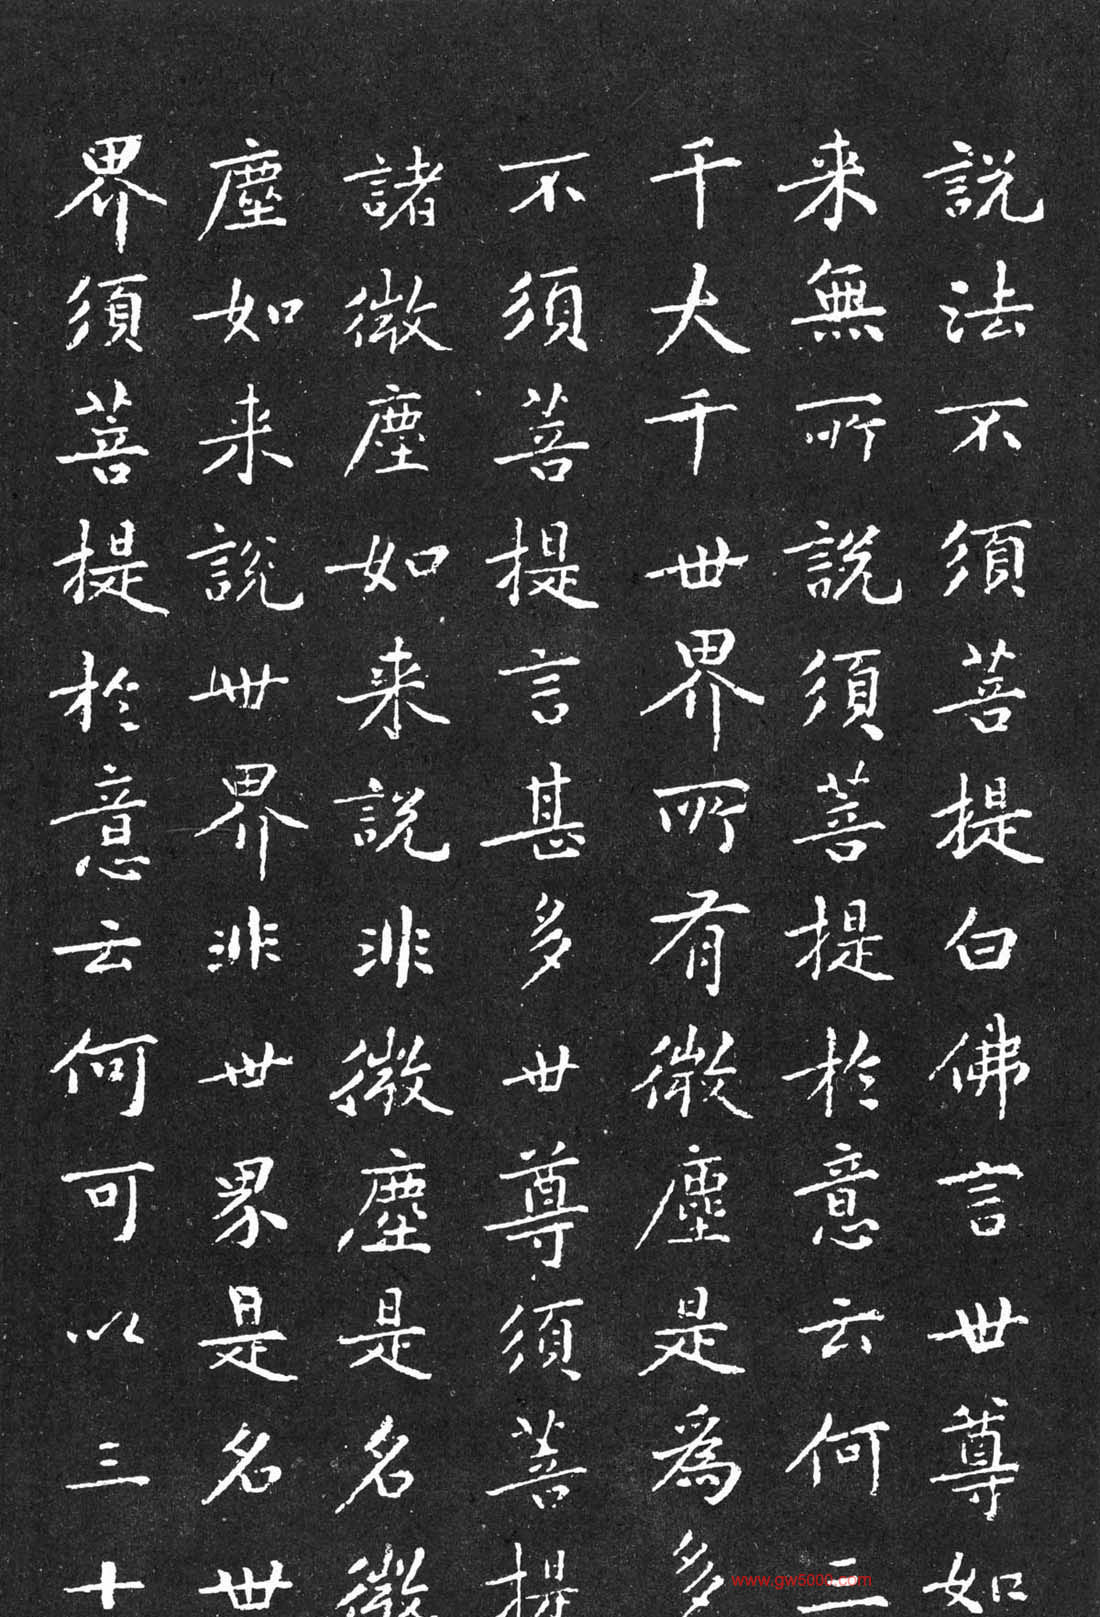 說法不須菩提白佛言世尊如
来無所說須菩提於意云何三
千大千世界所有微塵是為多
不須菩提言甚多世尊須菩提
諸微塵如来說非微塵是名微
塵如来說世界非世界是名世
界須菩提於意云何可以三十
www.gw5000.com